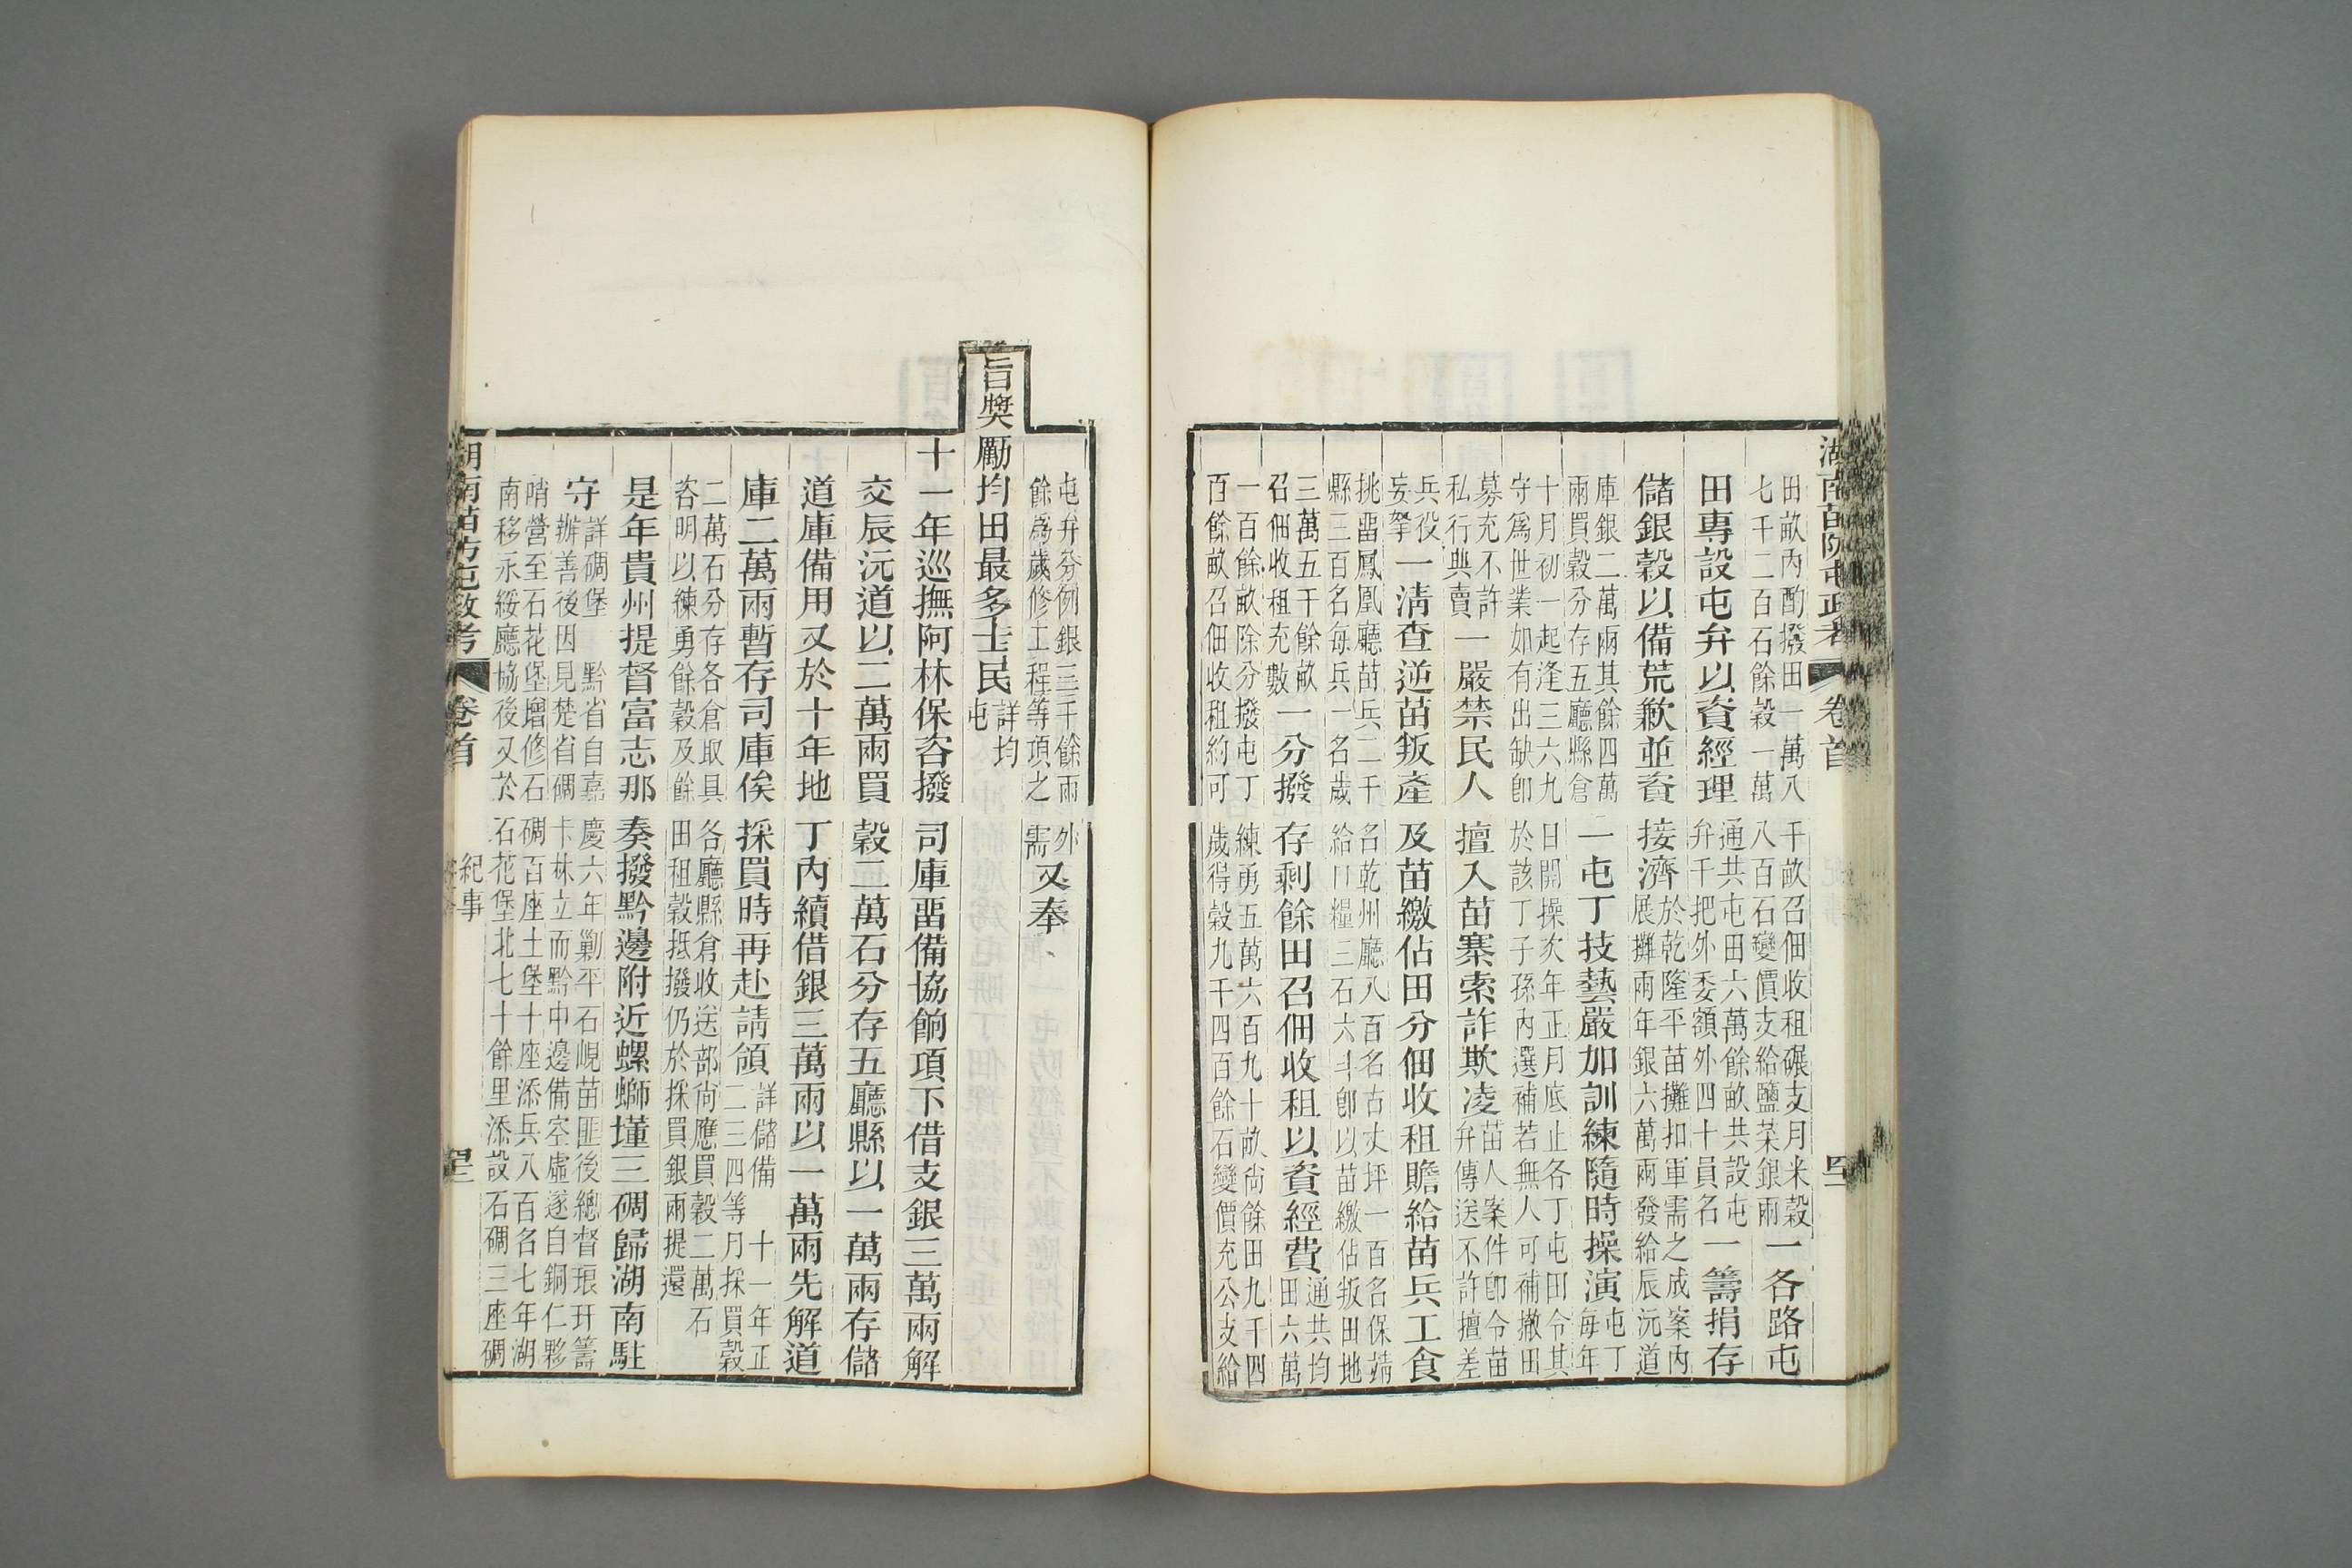 湖南苗防屯政考　卷首
田畝內酌撥田一萬八千畝召佃收租碾支月米穀
七千二百石餘穀一萬八百石變價支給鹽菜銀兩
一各路屯
田專設屯弁以資經理
通共屯田六萬餘畝共設屯
弁千把外委額外四十員名
一籌捐存
儲銀穀以備荒歉並資接濟
於乾隆平苗攤扣軍需之成案內
展攤兩年銀六萬兩發給辰沅道
庫銀二萬兩其餘四萬
兩買穀分存五廳縣倉
一屯丁技藝嚴加訓練隨時操演
屯丁
每年
十月初一起逢三六九日開操次年正月底止各丁屯田令其
守爲世業如有出缺卽於該丁子孫內選補若無人可補撤田
募充不許
私行典賣
一嚴禁民人擅入苗寨索詐欺凌
苗人案件卽令苗
弁傳送不許擅差
兵役
妄拏
一淸查逆苗叛產及苗繳佔田分佃收租贍給苗兵工食
挑畱鳳凰廳苗兵二千名乾州廳八百名古丈坪一百名保靖
縣三百名每兵一名歲給口糧三石六斗卽以苗繳佔叛田地
三萬五千餘畝
召佃收租充數
一分撥存剩餘田召佃收租以資經費
通共均
田六萬
一百餘畝除分撥屯丁練勇五萬六百九十畝尙餘田九千四
百餘畝召佃收租約可歲得穀九千四百餘石變價充公支給
屯弁分例銀三千餘兩外
餘爲歲修工程等項之需
又奉
旨獎勵均田最多士民
詳均
屯
十一年巡撫阿林保咨撥司庫畱備協餉項下借支銀三萬兩解
交辰沅道以二萬兩買穀二萬石分存五廳縣以一萬兩存儲
道庫備用又於十年地丁內續借銀三萬兩以一萬兩先解道
庫二萬兩暫存司庫俟採買時再赴請領
詳儲備　十一年正
二三四等月採買穀
二萬石分存各倉取具各廳縣倉收送部尙應買穀二萬石
咨明以練勇餘穀及餘田租穀抵撥仍於採買銀兩提還
是年貴州提督富志那奏撥黔邊附近螺螄墐三碉歸湖南駐
守
詳碉堡　黔省自嘉慶六年剿平石峴苗匪後總督琅玕籌
辦善後因見楚省碉卡林立而黔中邊備空虛遂自銅仁夥
哨營至石花堡增修石碉百座土堡十座添兵八百名七年湖
南移永綏廳協後又於石花堡北七十餘里添設石碉三座碉
湖南苗防屯政考　卷首　紀事